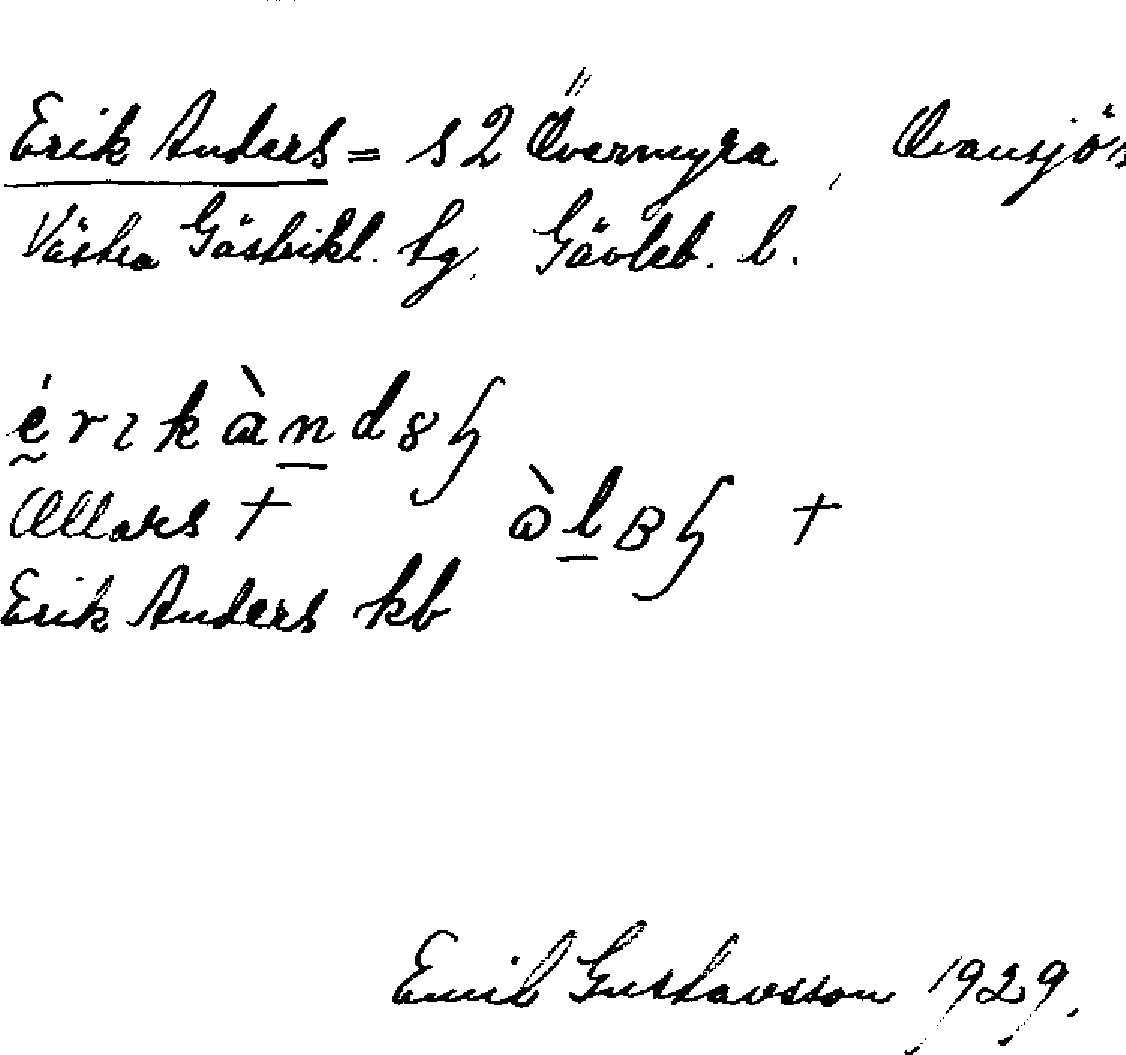 Erik Anders = s 2 Övermyra, Ovansjö s
Västra Gästrikl. tg. Gävleb. l.
Ollars †
Erik Anders kb
Emil Gustavsson 1929.